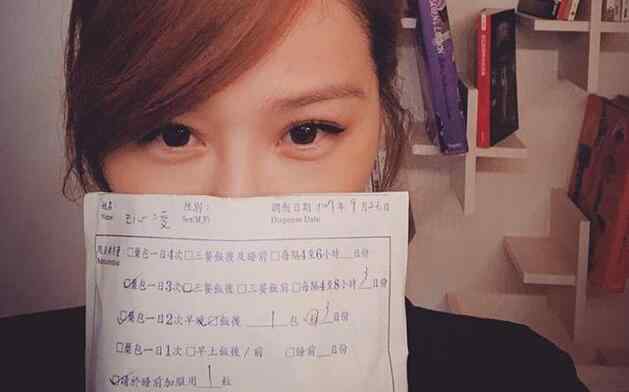 姓名 性別: 調劑日期 107年9月26日
Name Sex(M,F) Dispense Date
□藥包一日4次□三餐飯後及睡前□每隔4至6小時__日份
☑藥包一日3次□三餐飯後□三餐飯前□每隔4至8小時3日份
☑藥包一日2次早晚☑飯後 1 包 3日份
□藥包一日1次□早上飯後/前 □睡前__日份
☑請於睡前加服用 1 粒